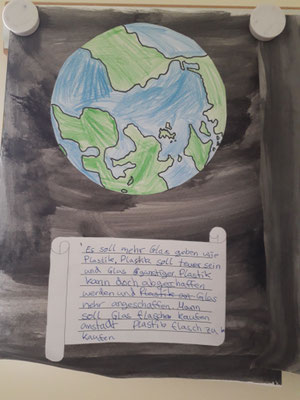 Es soll mehr Glas geben wie
Plastik, Plastik soll teuer sein
und Glas günstiger Plastik
kann doch abgeschaffen
werden und Glas
mehr angeschaffen. Mann
soll Glas flaschen kaufen
anstatt Plastik flasch zu
kaufen